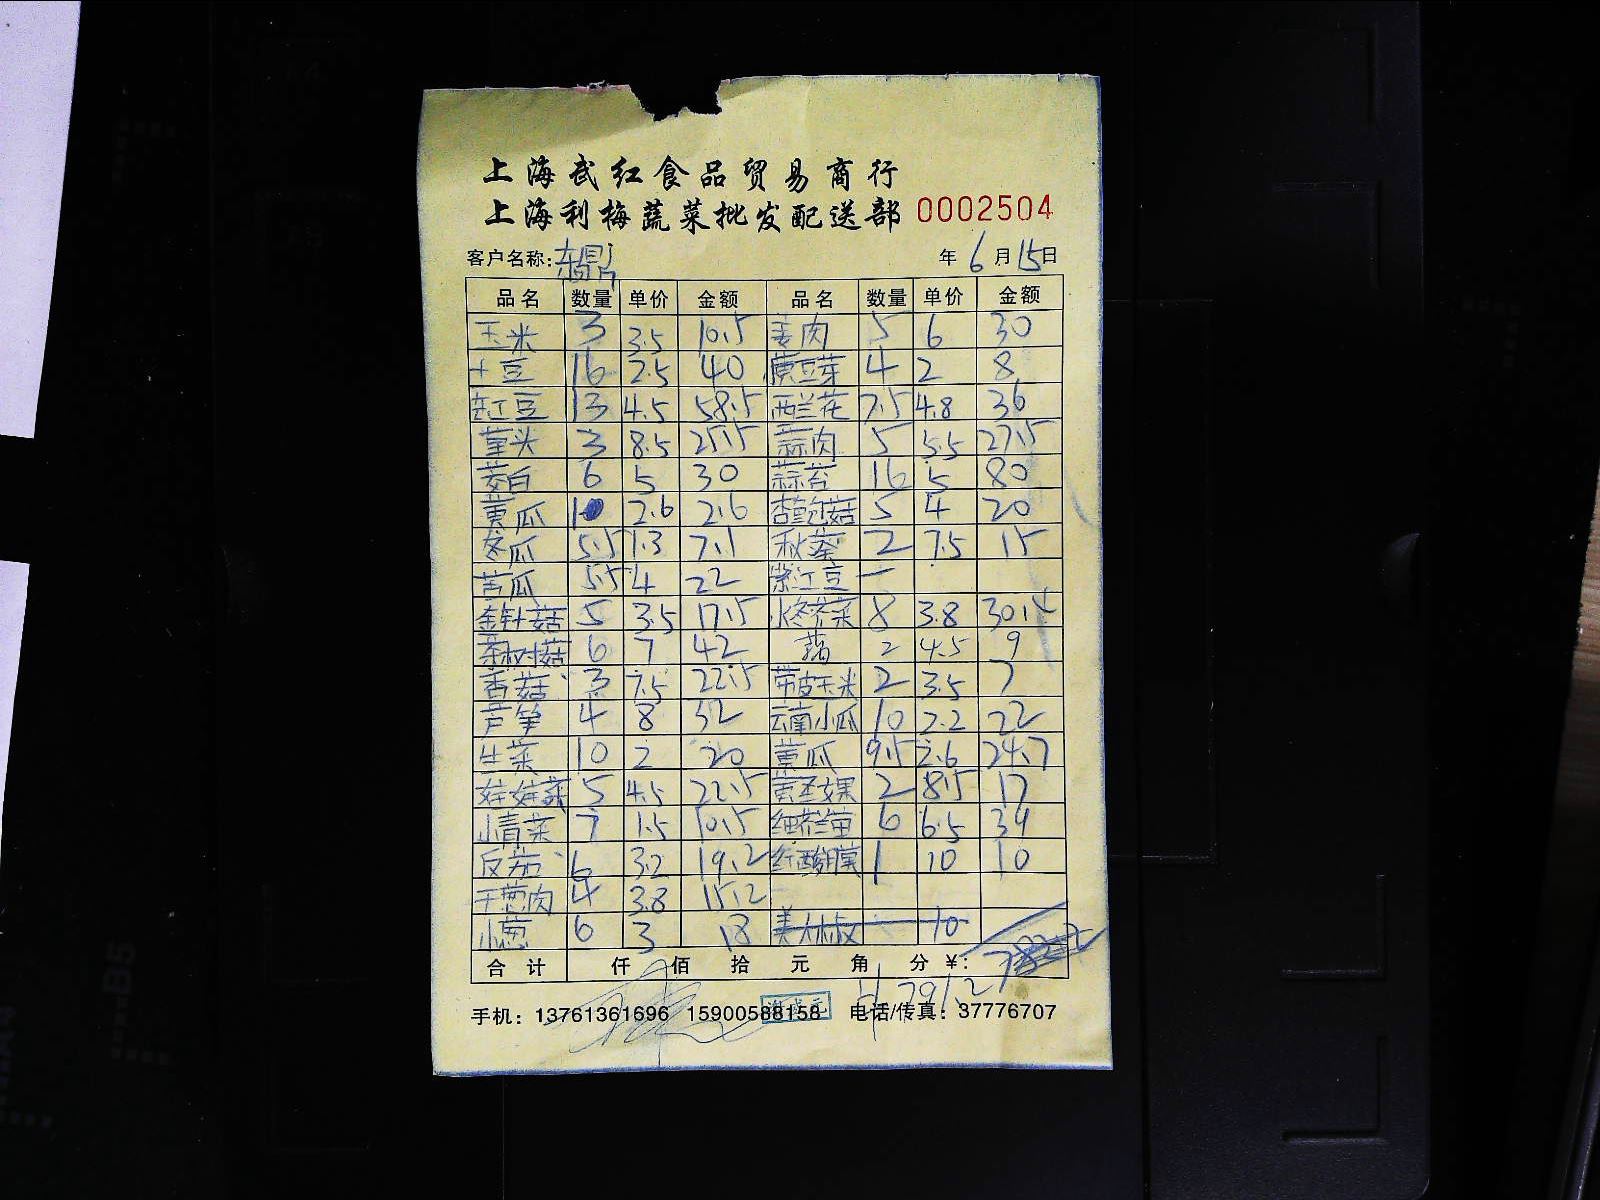 上海武红食品贸易商行
上海利梅蔬菜批发配送部 0002504
客户名称: 年 6 月 15 日
品名 数量 单价 金额 品名 数量 单价 金额
玉米 3 3.5 10.5 姜肉 5 6 30
土豆 16 2.5 40 黄豆芽 4 2 8
豇豆 13 4.5 58.5 西兰花 7.5 4.8 36
3 8.5 25.5 蒜肉 5 5.5 27.5
茭白 6 5 30 蒜苔 16 5 80
黄瓜 1 2.6 2.6 杏鲍菇 5 4 20
冬瓜 5.5 1.3 7.1 秋葵 2 7.5 15
苦瓜 5.5 4 22 紫江豆 一
金针菇 5 3.5 17.5 8 3.8 30.4
茶树菇 6 7 42 藕 2 4.5 9
香菇 3 7.5 22.5 带皮玉米 2 3.5 7
芦笋 4 8 32 云南小瓜 10 2.2 22
生菜 10 2 20 黄瓜 9.5 2.6 24.7
娃娃菜 5 4.5 22.5 2 8.5 17
小青菜 7 1.5 10.5 6 6.5 39
反茄 6 3.2 19.2 1 10 10
干葱肉 4 3.8 15.2
小葱 6 3 18 10
合计 仟 佰 拾 元 角 分 ¥:
791.2
手机: 13761361696 15900588158 电话/传真: 37776707